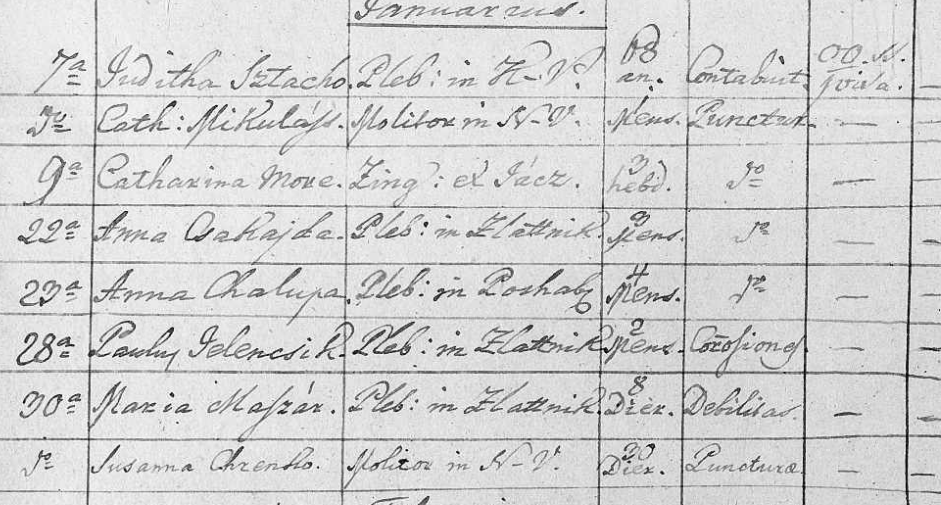 Januarius.
7a Juditha Sztacho. Pleb: in H-V. 68 an. Contabuit. OO. SS. provisa. —
do Cath: Mikulás. Molitor in N-V. 1 Mens. Punctur. —
9a Catharina More. Zing: ex Jácz. 3 hebd. do —
22a Anna Csakajda. Pleb: in Zlattnik. 9 Mens. do —
23a Anna Chalupa. Pleb: in 4 Mens. do —
28a Paulus Jelencsik. Pleb: in Zlattnik 2 Mens. Corosiones. —
30a Maria Maszár. Pleb: in Zlattnik. 8 Dier. Debilitas. —
do Susanna Chrenko. Molitor in N-V. 30 Dier. Puncturæ —